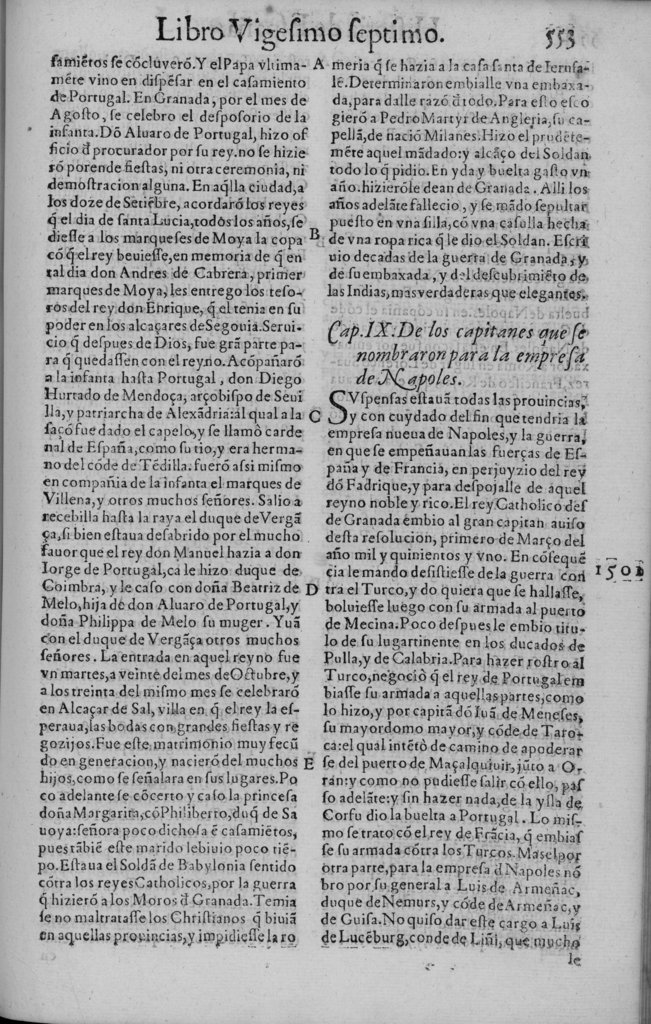 Libro Vigesimo septimo.
553
samiẽtos se cõcluyerõ. Y el Papa vltima-
mẽte vino en dispẽsar en el casamiento
de Portugal. En Granada, por el mes de
Agosto, se celebro el desposorio de la
infanta. Dõ Aluaro de Portugal, hizo of
ficio đ procurador por su rey. no se hizie
rõ porende fiestas, ni otra ceremonia, ni
demostracion alguna. En aq̃lla ciudad, a
los doze de Setiẽbre, acordarõ los reyes
q̃ el dia de santa Lucia, todos los años, se
diesse a los marqueses de Moya la copa
cõ q̃ el rey beuiesse, en memoria de q̃ en
tal dia don Andres de Cabrera, primer
marques de Moya, les entrego los teso-
ros del rey don Enrique, q̃ el tenia en su
poder en los alcaçares de Segouia. Serui-
cio q̃ despues de Dios, fue grã parte pa-
ra q̃ quedassen con el reyno. Acõpañarõ
a la infanta hasta Portugal, don Diego
Hurtado de Mendoça, arçobispo de Seui
lla, y patriarcha de Alexãdria: al qual a la
saçõ fue dado el capelo, y se llamò carde
nal de España, como su tio, y era herma-
no del cõde de Tẽdilla. fuerõ assi mismo
en compañia de la infanta el marques de
Villena, y otros muchos señores. Salio a
recebilla hasta la raya el duque de Vergã
ça, si bien estaua desabrido por el mucho
fauor que el rey don Manuel hazia a don
Iorge de Portugal, ca le hizo duque de
Coimbra, y le caso con doña Beatriz de
Melo, hija de don Aluaro de Portugal, y
doña Philippa de Melo su muger. Yuã
con el duque de Vergãça otros muchos
señores. La entrada en aquel reyno fue
vn martes, a veinte del mes de Octubre, y
a los treinta del mismo mes se celebrarõ
en Alcaçar de Sal, villa en q̃ el rey la es-
peraua, las bodas con grandes fiestas y re
gozijos. Fue este matrimonio muy fecũ
do en generacion, y nacierõ del muchos
hijos, como se señalara en sus lugares. Po
co adelante se cõcerto y caso la princesa
doña Margarita, cõ Philiberto, duq̃ de Sa
uoya: señora poco dichosa ẽ casamiẽtos,
pues tãbiẽ este marido le biuio poco tiẽ-
po. Estaua el Soldã de Babylonia sentido
cõtra los reyes Catholicos, por la guerra
q̃ hizierõ a los Moros đ Granada. Temia
se no maltratasse los Christianos q̃ biuiã
en aquellas prouincias, y impidiesse la ro
A
B
C
D
E
meria q̃ se hazia a la casa santa de Ierusa-
lẽ. Determinaron embialle vna embaxa-
da, para dalle razõ đ todo. Para esto esco
gierõ a Pedro Martyr de Angleria, su ca-
pellã, de naciõ Milanes. Hizo el prudẽte-
mẽte aquel mãdado: y alcãço del Soldan
todo lo q̃ pidio. En yda y buelta gasto vn
año. hizierõle dean de Granada. Alli los
años adelãte fallecio, y se mãdo sepultar
puesto en vna silla, cõ vna casulla hecha
de vna ropa rica q̃ le dio el Soldan. Escri
uio decadas de la guerra de Granada, y
de su embaxada, y del descubrimiẽto de
las Indias, mas verdaderas que elegantes.
Cap. IX. De los capitanes que se
nombraron para la empresa
de Napoles.
SVspensas estauã todas las prouincias,
y con cuydado del fin que tendria la
empresa nueua de Napoles, y la guerra,
en que se empeñauan las fuerças de Es-
paña y de Francia, en perjuyzio del rey
dõ Fadrique, y para despojalle de aquel
reyno noble y rico. El rey Catholico des
de Granada embio al gran capitan auiso
desta resolucion, primero de Março del
año mil y quinientos y vno. En cõsequẽ
cia le mando desistiesse de la guerra con
tra el Turco, y do quiera que se hallasse,
boluiesse luego con su armada al puerto
de Mecina. Poco despues le embio titu-
lo de su lugartinente en los ducados de
Pulla, y de Calabria. Para hazer rostro al
Turco, negociò q̃ el rey de Portugal em
biasse su armada a aquellas partes, como
lo hizo, y por capitã dõ Iuã de Meneses,
su mayordomo mayor, y cõde de Taro-
ca: el qual intẽtò de camino de apoderar
se del puerto de Maçalquiuir, jũto a O-
ran: y como no pudiesse salir cõ ello, pas
so adelãte: y sin hazer nada, de la ysla de
Corfu dio la buelta a Portugal. Lo mis-
mo se trato cõ el rey de Frãcia, q̃ embias
se su armada cõtra los Turcos. Mas el por
otra parte, para la empresa đ Napoles nõ
bro por su general a Luis de Armeñac,
duque de Nemurs, y cõde de Armeñac, y
de Guisa. No quiso dar este cargo a Luis
de Lucẽburg, conde de Liñi, que mucho
le
1501